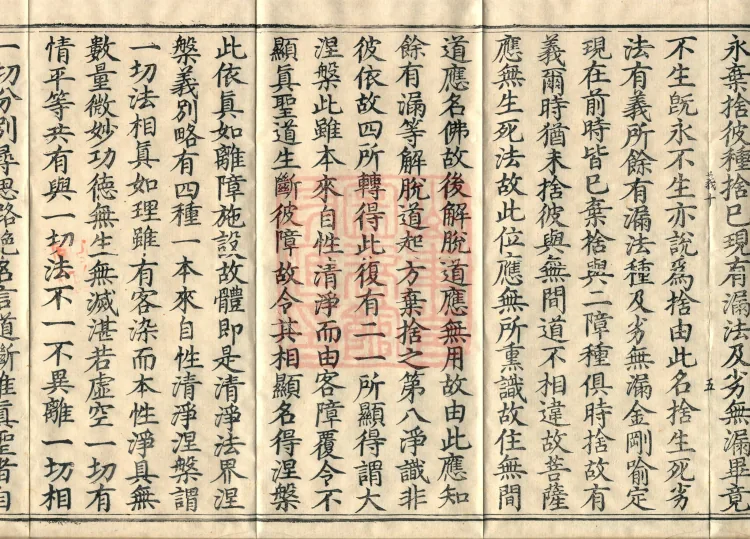 永棄捨彼種捨已現有漏法及劣無漏畢竟
不生既永不生亦說為捨由此名捨生死劣
法有義所餘有漏法種及劣無漏金剛喻定
現在前時皆已棄捨與二障種俱時捨故有
義爾時猶未捨彼與無間道不相違故菩薩
應無生死法故此位應無所熏識故住無間
道應名佛故後解脫道應無用故由此應知
餘有漏等解脫道起方棄捨之第八淨識非
彼依故四所轉得此復有二一所顯得謂大
涅槃此雖本來自性清淨而由客障覆令不
顯真聖道生斷彼障故令其相顯名得涅槃
此依真如離障施設故體即是清淨法界涅
槃義別略有四種一本來自性清淨涅槃謂
一切法相真如理雖有客染而本性淨具無
數量微妙功德無生無滅湛若虛空一切有
情平等共有與一切法不一不異離一切相
一切分別尋思路絕名言道斷唯真聖者自
五